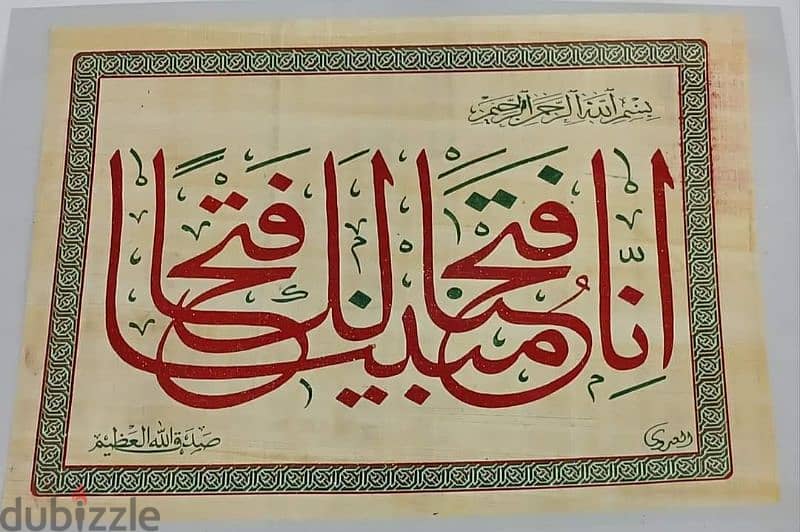 بسم الله الرحمن الرحيم
إنا فتحنا لك فتحا مبينا
صدق الله العظيم
dubizzle